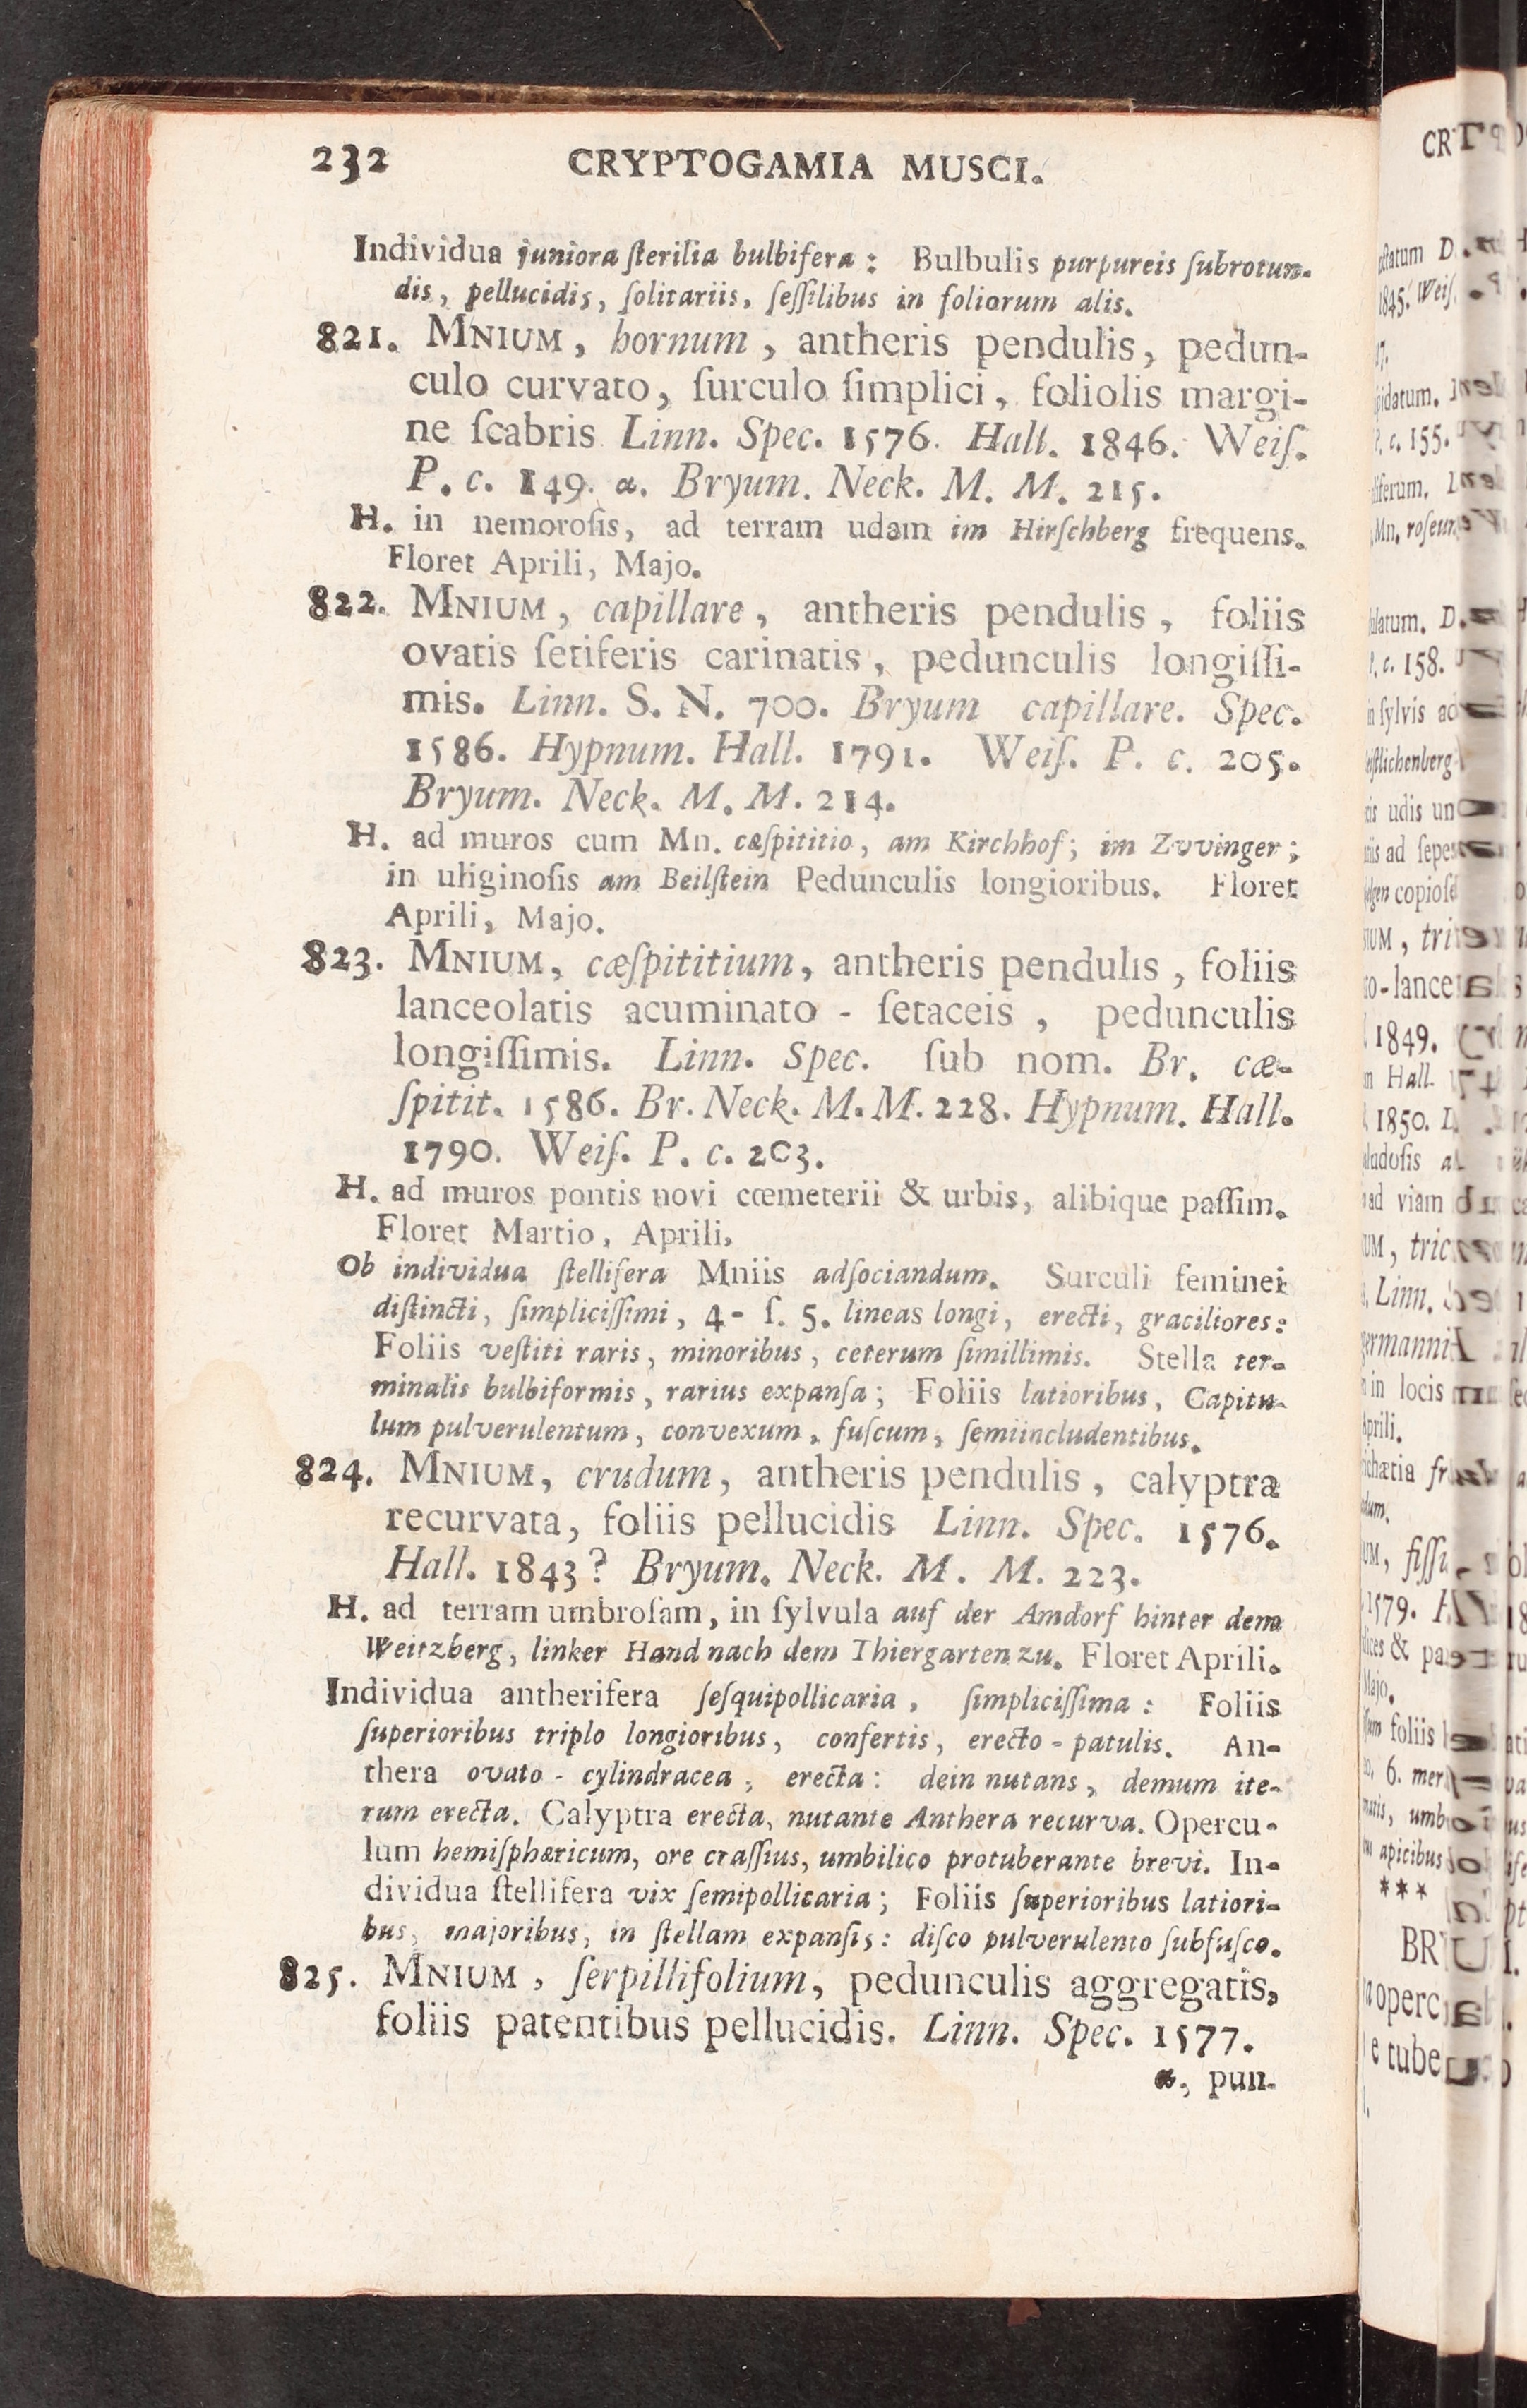 232 CRYPTOGAMIA MUSCI.
Individua juniora ſterilia bulbifera: Bulbulis purpureis ſubrotun-
dis, pellucidis, ſolitariis, ſeſſilibus in foliorum alis.
821. MNIUM, hornum, antheris pendulis, pedun-
culo curvato, ſurculo ſimplici, foliolis margi-
ne ſcabris Linn. Spec. 1576. Hall. 1846. Weiſ.
P. c. 149. α. Bryum. Neck. M. M. 215.
H. in nemoroſis, ad terram udam im Hirſchberg frequens.
Floret Aprili, Majo.
822. MNIUM, capillare, antheris pendulis, foliis
ovatis ſetiferis carinatis, pedunculis longiſſi-
mis. Linn. S. N. 700. Bryum capillare. Spec.
1586. Hypnum. Hall. 1791. Weiſ. P. c. 205.
Bryum. Neck. M. M. 214.
H. ad muros cum Mn. cæſpititio, am Kirchhof; im Zvvinger;
in uliginoſis am Beilſtein Pedunculis longioribus. Floret
Aprili, Majo.
823. MNIUM, cæſpititium, antheris pendulis, foliis
lanceolatis acuminato - ſetaceis, pedunculis
longiſſimis. Linn. Spec. ſub nom. Br. cæ-
ſpitit. 1586. Br. Neck. M. M. 228. Hypnum. Hall.
1790. Weiſ. P. c. 203.
H. ad muros pontis novi cœmeterii & urbis, alibique paſſim.
Floret Martio, Aprili.
Ob individua ſtellifera Mniis adſociandum. Surculi feminei
diſtincti, ſimpliciſſimi, 4 - ſ. 5. lineas longi, erecti, graciliores:
Foliis veſtiti raris, minoribus, ceterum ſimillimis. Stella ter-
minalis bulbiformis, rarius expanſa; Foliis latioribus, Capitu-
lum pulverulentum, convexum, fuſcum, ſemiincludentibus.
824. MNIUM, crudum, antheris pendulis, calyptra
recurvata, foliis pellucidis Linn. Spec. 1576.
Hall. 1843? Bryum. Neck. M. M. 223.
H. ad terram umbroſam, in ſylvula auf der Amdorf hinter dem
Weitzberg, linker Hand nach dem Thiergarten zu. Floret Aprili.
Individua antherifera ſeſquipollicaria, ſimpliciſſima: Foliis
ſuperioribus triplo longioribus, confertis, erecto - patulis. An-
thera ovato - cylindracea, erecta: dein nutans, demum ite-
rum erecta. Calyptra erecta, nutante Anthera recurva. Opercu-
lum hemiſphæricum, ore craſſius, umbilico protuberante brevi. In-
dividua ſtellifera vix ſemipollicaria; Foliis ſuperioribus latiori-
bus, majoribus, in ſtellam expanſis: diſco pulverulento ſubfuſco.
825. MNIUM, ſerpillifolium, pedunculis aggregatis,
foliis patentibus pellucidis. Linn. Spec. 1577.
α, pun-